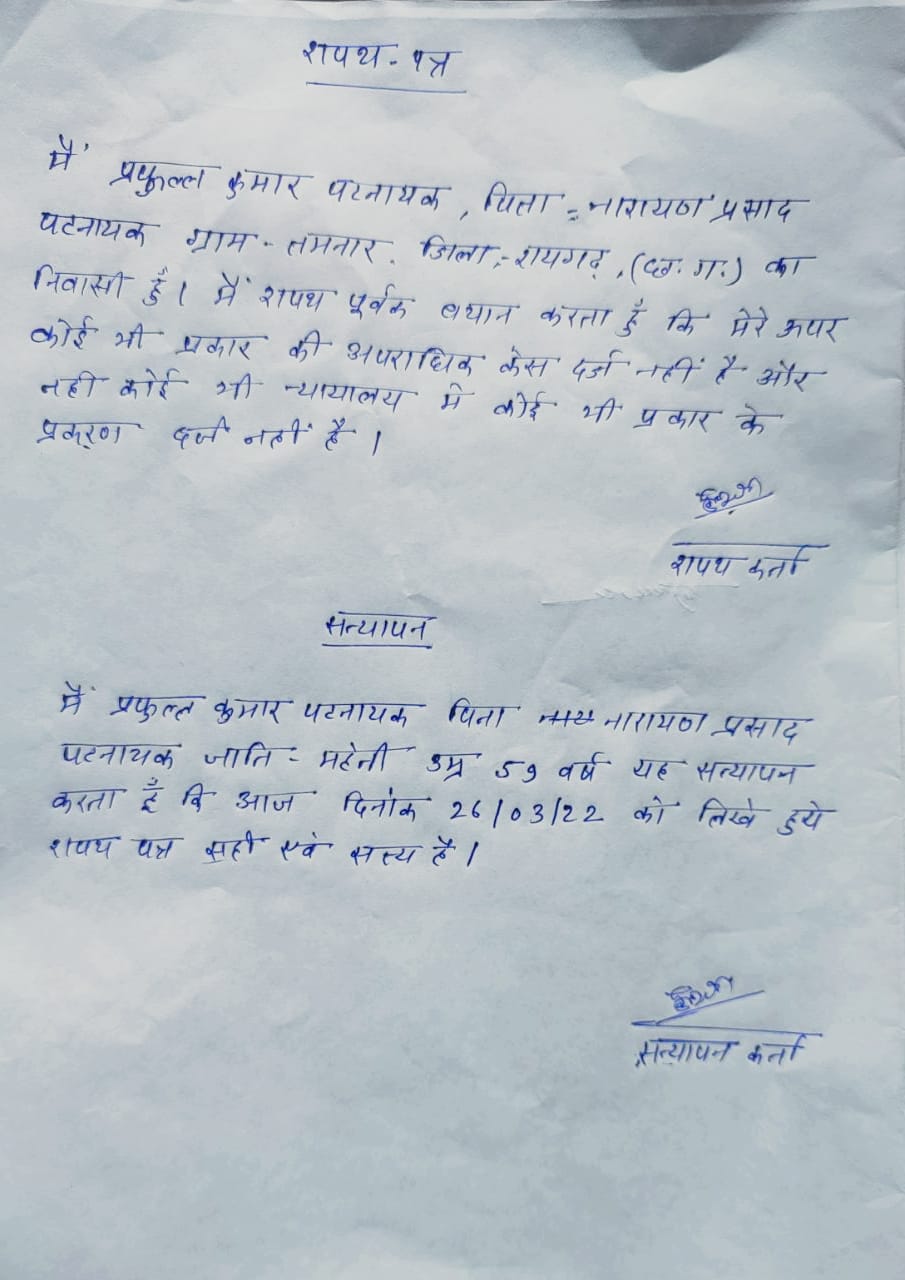 शपथ-पत्र
मैं प्रफुल्ल कुमार पटनायक, पिता = नारायण प्रसाद
पटनायक ग्राम - तमनार. जिला - रायगढ़, (छ. ग.) का
निवासी हूँ। मैं शपथ पूर्वक बयान करता हूँ कि मेरे ऊपर
कोई भी प्रकार की अपराधिक केस दर्ज नहीं है और
नही कोई भी न्यायालय मे कोई भी प्रकार के
प्रकरण दर्ज नहीं है।
शपथ कर्ता
सत्यापन
मैं प्रफुल्ल कुमार पटनायक पिता नारायण प्रसाद
पटनायक जाति - उम्र 59 वर्ष यह सत्यापन
करता हूँ कि आज दिनांक 26/03/22 को लिखे हुये
शपथ पत्र सही एवं सत्य है।
सत्यापन कर्ता